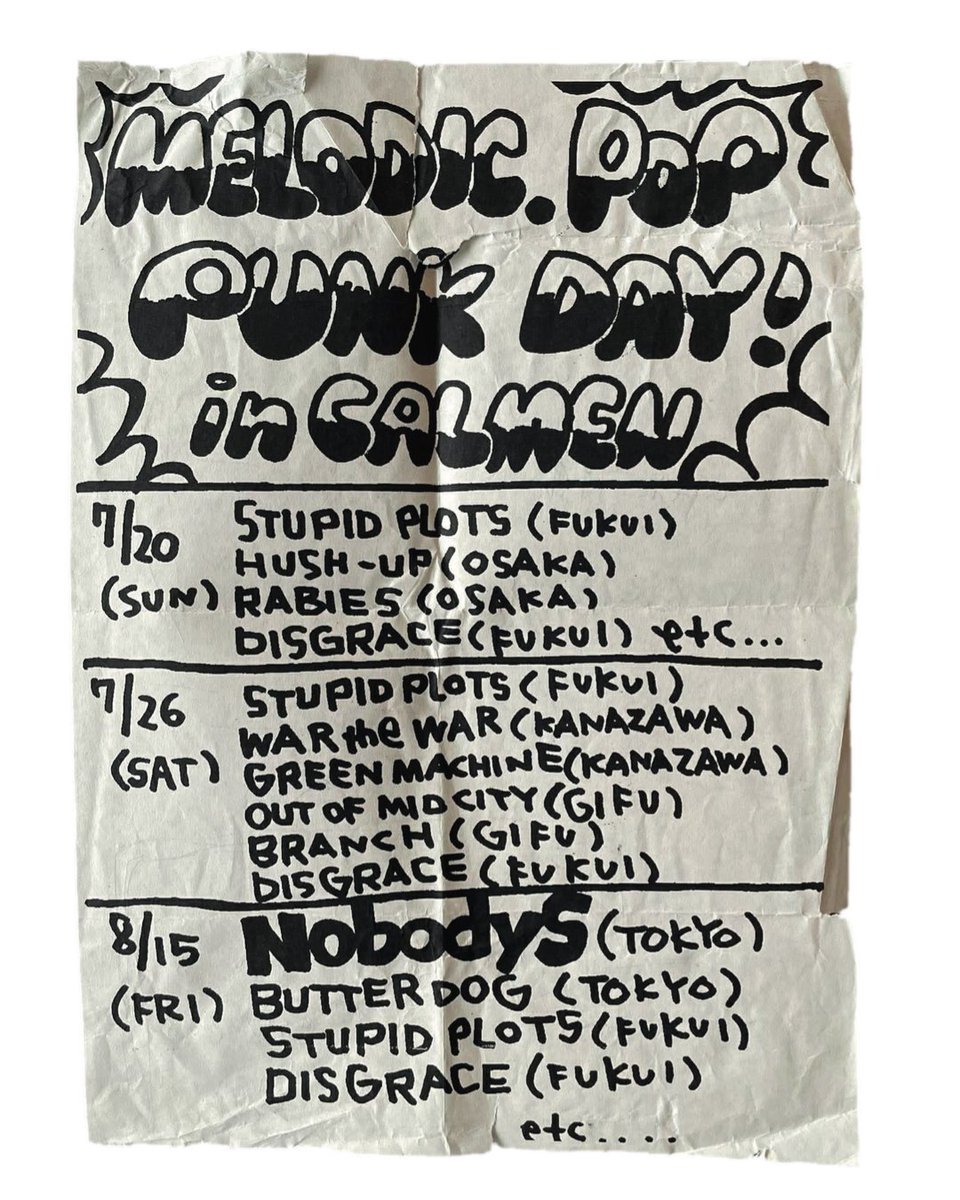 MELODIC. POP
PUNK DAY!
in CALMEN
7/20
(SUN)
STUPID PLOTS (FUKUI)
HUSH-UP (OSAKA)
RABIES (OSAKA)
DISGRACE (FUKUI) etc...
7/26
(SAT)
STUPID PLOTS (FUKUI)
WAR the WAR (KANAZAWA)
GREEN MACHINE (KANAZAWA)
OUT OF MID CITY (GIFU)
BRANCH (GIFU)
DISGRACE (FUKUI)
8/15
(FRI)
NobodyS (TOKYO)
BUTTER DOG (TOKYO)
STUPID PLOTS (FUKUI)
DISGRACE (FUKUI)
etc....